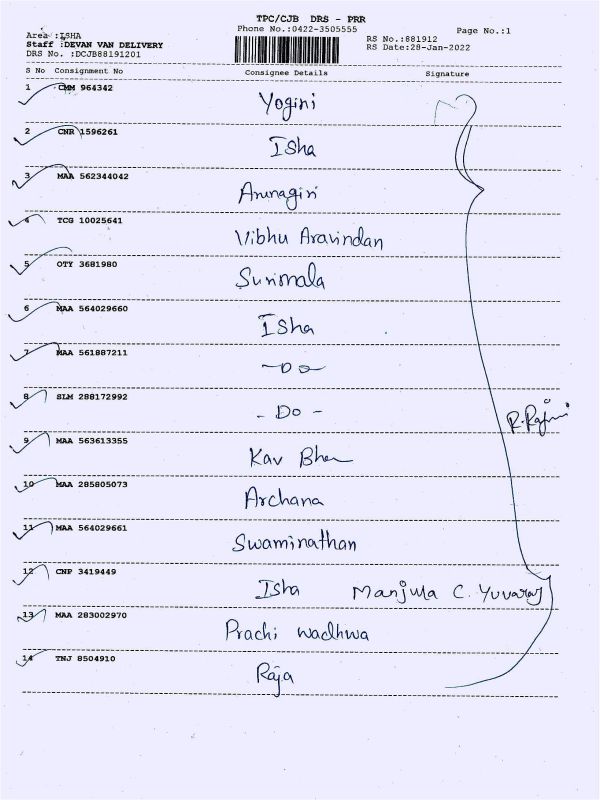 TPC/CJB DRS - PRR
Phone No.:0422-3505555
Page No.:1
Area :ISHA
RS No.:881912
Staff :DEVAN VAN DELIVERY
RS Date:28-Jan-2022
DRS No. :DCJB88191201
S No Consignment No Consignee Details Signature
1 CMM 964342
Yogini
2 CNR 1596261
Isha
3 MAA 562344042
Arunagiri
4 TCG 10025641
Vibhu Aravindan
5 OTY 3681980
Sunimala
6 MAA 564029660
Isha
7 MAA 561887211
- Do -
8 SLM 288172992
- Do -
R. Rajini
9 MAA 563613355
Kav
10 MAA 285805073
Archana
11 MAA 564029661
Swaminathan
12 CNP 3419449
Isha Manjula C. Yuvaraj
13 MAA 283002970
Prachi Wadhwa
14 TNJ 8504910
Raja